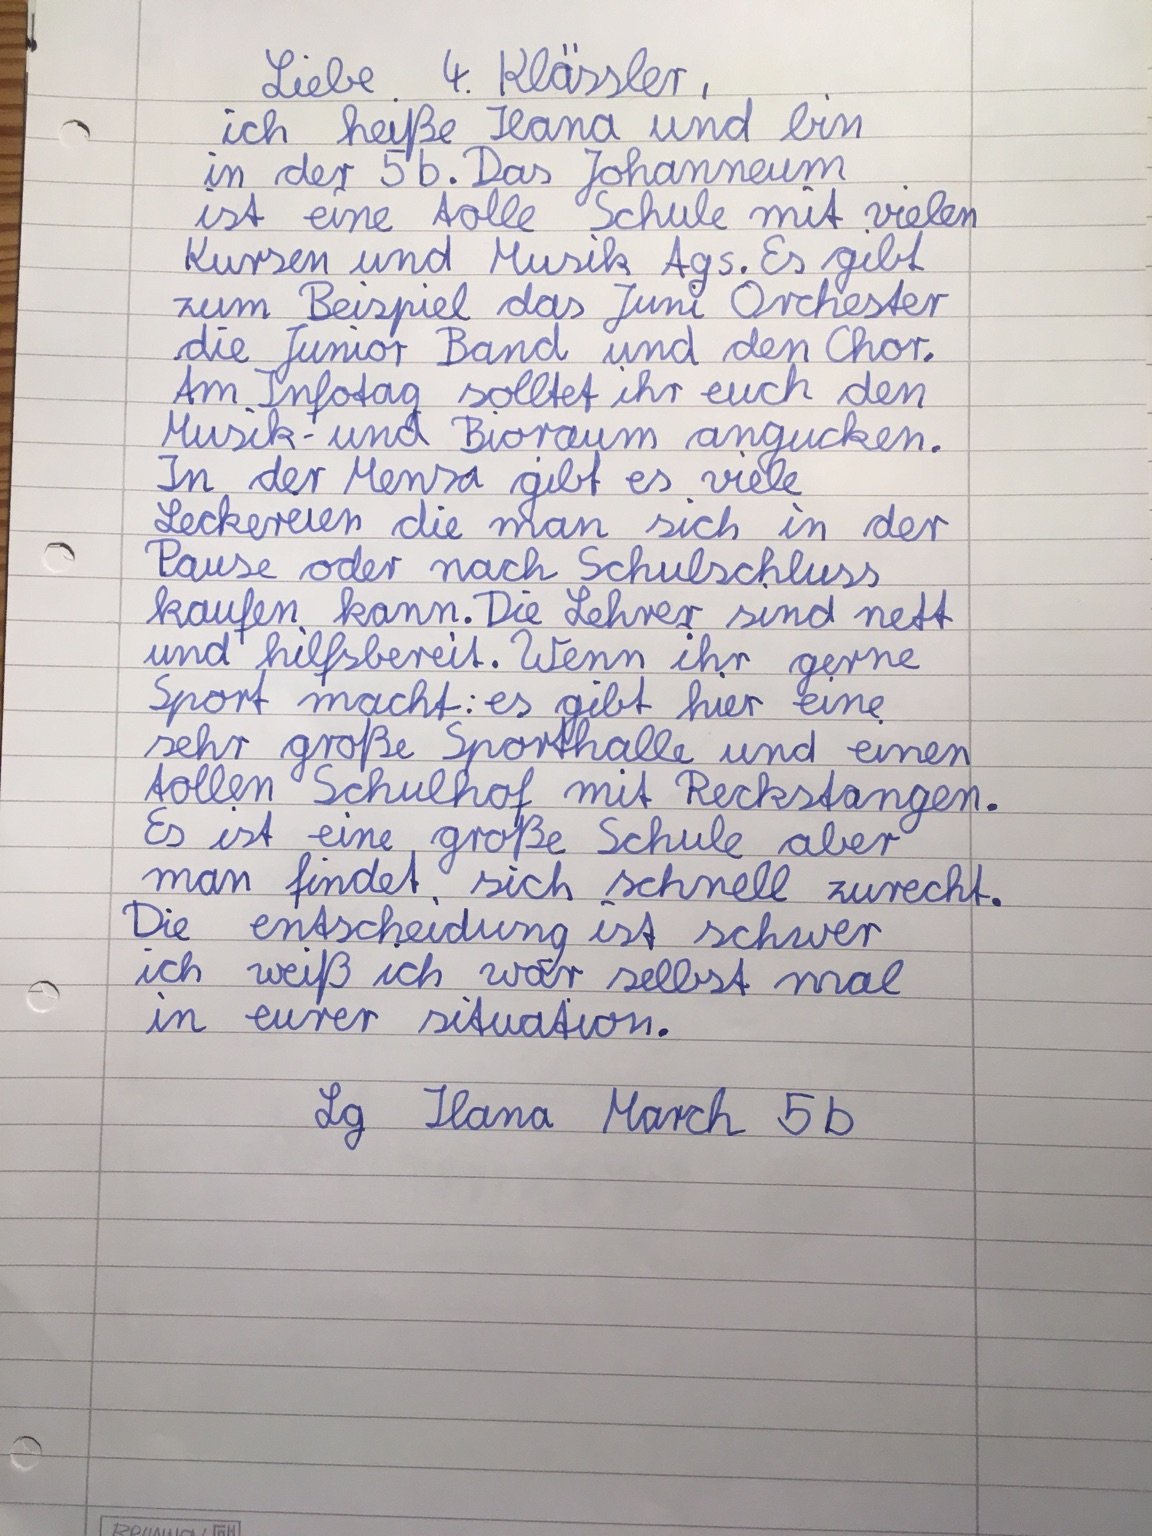 Liebe 4. Klässler,
ich heiße Ilana und bin
in der 5b. Das Johanneum
ist eine tolle Schule mit vielen
Kursen und Musik Ags. Es gibt
zum Beispiel das Juni Orchester
die Junior Band und den Chor.
Am Infotag solltet ihr euch den
Musik- und Bioraum angucken.
In der Mensa gibt es viele
Leckereien die man sich in der
Pause oder nach Schulschluss
kaufen kann. Die Lehrer sind nett
und hilfsbereit. Wenn ihr gerne
Sport macht: es gibt hier eine
sehr große Sporthalle und einen
tollen Schulhof mit Reckstangen.
Es ist eine große Schule aber
man findet sich schnell zurecht.
Die entscheidung ist schwer
ich weiß ich war selbst mal
in eurer situation.
Lg Ilana March 5b